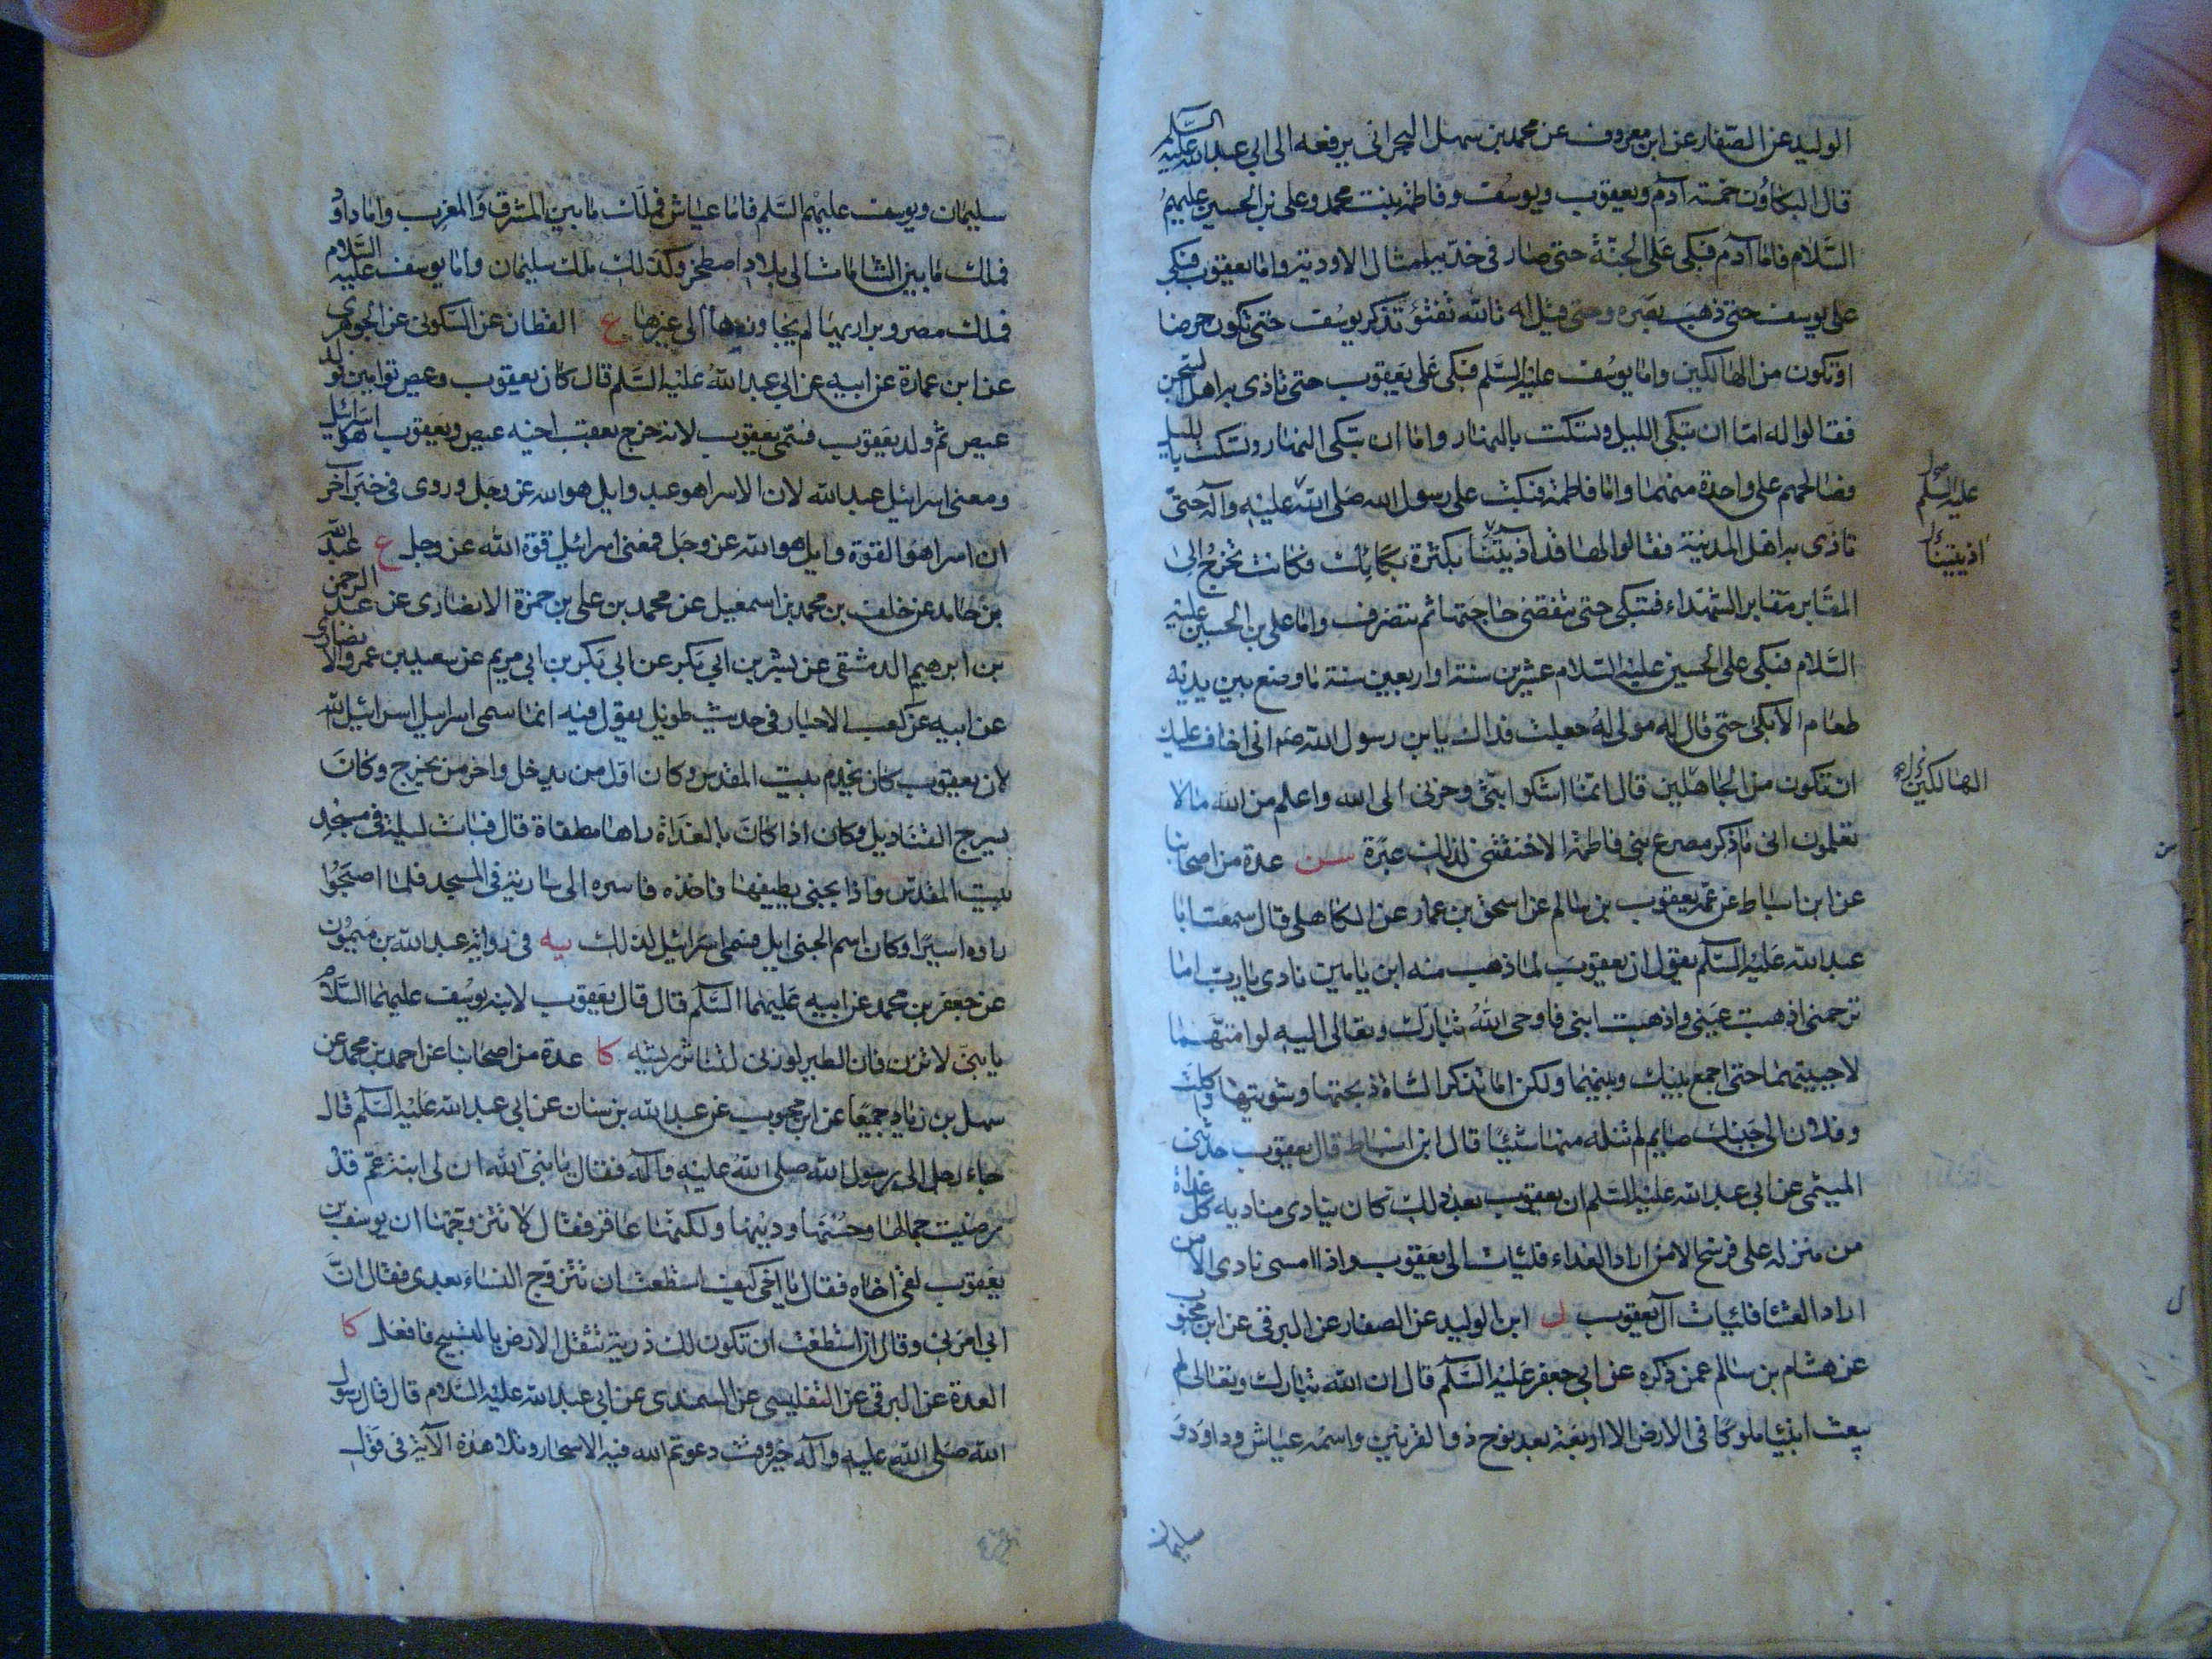 الوليد عن الصفار عن ابن معروف عن محمد بن سهل البحراني يرفعه الى ابي عبد الله عليه السلم
قال البكاؤن خمسة آدم ويعقوب ويوسف وفاطمة بنت محمد وعلي بن الحسين عليهم
السلام فاما آدم فبكى على الجنة حتى صار في خديه امثال الاودية واما يعقوب فبكى
على يوسف حتى ذهب بصره وحتى قيل له تالله تفتؤ تذكر يوسف حتى تكون حرضا
او تكون من الهالكين واما يوسف عليه السلم فبكى على يعقوب حتى تاذى به اهل السجن
فقالوا له اما ان تبكي الليل وتسكت بالنهار واما ان تبكي النهار وتسكت بالليل
فصالحهم على واحدة منهما واما فاطمة فبكت على رسول الله صلى الله عليه وآله حتى
تاذى به اهل المدينة فقالوا لها قد اذيتنا بكثرة بكائك فكانت تخرج الى
المقابر مقابر الشهداء فتبكي حتى تقضي حاجتها ثم تنصرف واما علي بن الحسين عليه
السلام فبكى على الحسين عليه السلام عشرين سنة او اربعين سنة ما وضع بين يديه
طعام الا بكى حتى قال له مولى له جعلت فداك يابن رسول الله صم اني اخاف عليك
ان تكون من الجاهلين قال انما اشكو ابثي وحزني الى الله واعلم من الله ما لا
تعلمون اني ما اذكر مصرع بني فاطمة الا خنقتني لذلك عبرة سن عدة من اصحابنا
عن ابن اسباط عن عمه يعقوب بن سالم عن اسحق بن عمار عن الكاهلي قال سمعت ابا
عبد الله عليه السلم يقول ان يعقوب لما ذهب منه ابن يامين نادى يا رب اما
ترحمني اذهبت عيني واذهبت ابني فاوحى الله تبارك وتعالى اليه لو امتهما
لاحييتهما حتى اجمع بينك وبينهما ولكن اما تذكر الشاة ذبحتها وشويتها واكلت
وفلان الى جنبك صايم لم تنله منها شيئا قال ابن اسباط قال يعقوب حدثني
الميثمي عن ابي عبد الله عليه السلم ان يعقوب بعد ذلك كان ينادي مناديه كل غداة
من منزله على فرسخ الا من اراد الغداء فليات الى يعقوب واذا امسى نادى الا من
اراد العشا فليات آل يعقوب ل ابن الوليد عن الصفار عن البرقي عن ابن محبو
عن هشام بن سالم عمن ذكره عن ابي جعفر عليه السلم قال ان الله تبارك وتعالى لم
يبعث انبيا ملوكا في الارض الا اربعة بعد نوح ذو القرنين واسمه عياش وداود و
سليمان
عليه السلم
اذيتينا
الهالكين
سليمان ويوسف عليهم السلم فاما عياش فملك ما بين المشرق والمغرب واما داو
فملك ما بين الشامات الى بلاد اصطخر وكذلك ملك سليمان واما يوسف عليه السلام
فملك مصر وبراريها لم يتجاوزها الى غيرها ع القطان عن السكوني عن الجوهري
عن ابن عمارة عن ابيه عن ابي عبد الله عليه السلم قال كان يعقوب وعيص توأمين فولد
عيص ثم ولد يعقوب فسمي يعقوب لانه خرج بعقب اخيه عيص ويعقوب هو اسرائيل
ومعنى اسرائيل عبد الله لان الاسرا هو عبد وايل هو الله عز وجل وروى في خبر آخر
ان اسرا هو القوة وايل هو الله عز وجل فمعنى اسرائيل قوة الله عز وجل ع عبد الله
بن حامد عن خلف بن محمد بن اسمعيل عن محمد بن علي بن حمزة الانصاري عن عبد الرحمن
بن ابرهيم الدمشقي عن بشر بن ابي بكر عن ابي بكر بن ابي مريم عن سعيد بن عمرو الانصاري
عن ابيه عن كعب الاحبار في حديث طويل يقول فيه انما سمى اسرايل اسرائيل الله
لان يعقوب كان يخدم بيت المقدس وكان اول من يدخل واخر من يخرج وكان
يسرج القناديل وكان اذا كان بالغداة راها مطفاة قال فبات ليلة في مسجد
بيت المقدس واذا بجني يطفيها فاخذه فاسره الى سارية في المسجد فلما اصبحوا
راوه اسيرا وكان اسم الجني ايل فسمي اسرائيل لذلك يه في رواية عبد الله بن ميمون
عن جعفر بن محمد عن ابيه عليهما السلم قال قال يعقوب لابنه يوسف عليهما السلام
يا بني لا تزن فان الطير لو زنى لتناثر ريشه كا عدة من اصحابنا عن احمد بن محمد عن
سهل بن زياد جميعا عن ابن محبوب عن عبد الله بن سنان عن ابي عبد الله عليه السلم قال
جاء رجل الى رسول الله صلى الله عليه وآله فقال يا نبي الله ان لي ابنة عم قد
رضيت جمالها وحسنها ودينها ولكنها عاقر فقال لا تتزوجها ان يوسف بن
يعقوب لقى اخاه فقال يا اخي كيف استطعت ان تتزوج النساء بعدي فقال ان
ابي امرني وقال ان استطعت ان تكون لك ذرية تثقل الارض بالتسبيح فافعل كا
العدة عن البرقي عن التفليسي عن السمندي عن ابي عبد الله عليه السلام قال قال رسول
الله صلى الله عليه وآله خير وقت دعوتم الله فيه الاسحار وتلا هذه الآية في قول